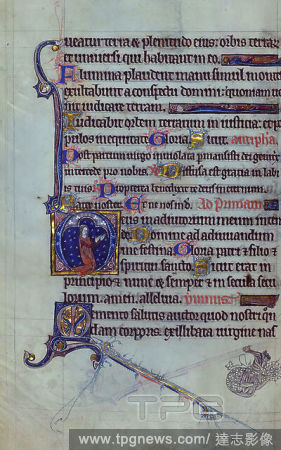 ueatur terra & plenitudo eius: orbis terrar
et universi qui habitant in eo.
Flumina plaudent manu simul monte
exultabunt a conspectu domini: quoniam
uenit iudicare terram.
Iudicabit orbem terrarum in iusticia: et po
pulos in equitate Gloria. Sicut. antipha.
Post partum uirgo inuiolata permansisti dei genitrix
intercede pro nobis. Diffusa est gratia in labi
is tuis. Propterea benedixit te deus in eternum.
Pater noster. Et ne nos. Ad Primam.
Deus in adiutorium meum inten
de. Domine ad adiuuandum
me festina. Gloria patri & filio &
spiritui sancto. Sicut erat in
principio & nunc & semper & in secula secu
lorum. amen. alleluia. ymnus.
Memento salutis auctor quod nostri qu
dam corporis. ex illibata uirgine nas
TPG
www.tpgnews.com/ 達志影像